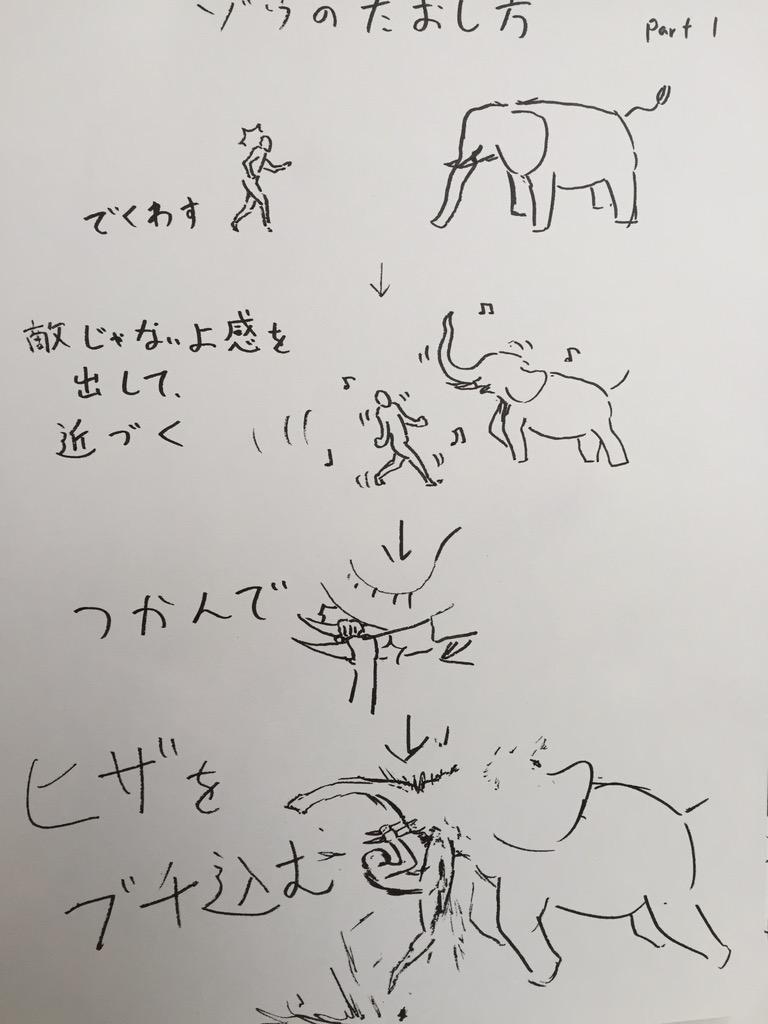 ゾウのたおし方
Part 1
でくわす
敵じゃないよ感を
出して、
近づく
つかんで
ヒザを
ブチ込む